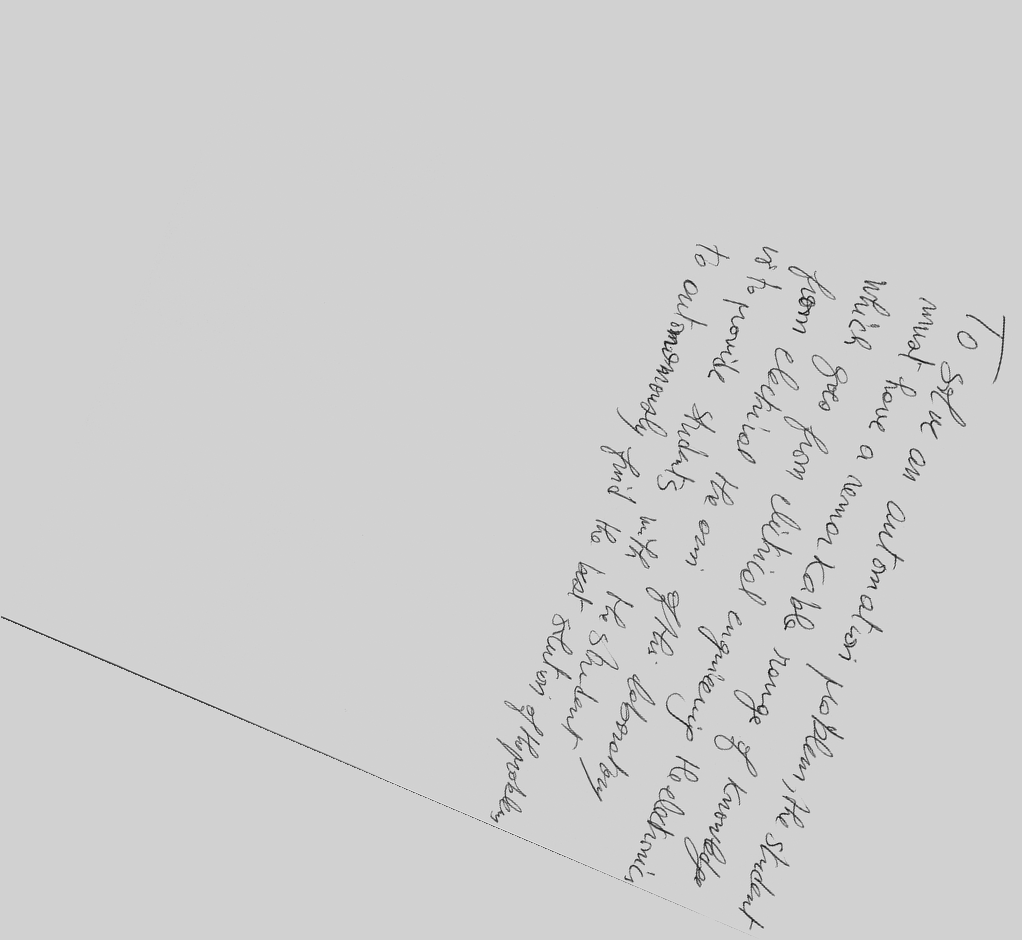 To solve an automation problem, the student
must have a remarkable range of knowledge
which goes from electrical engineering the electronics
from electrical the aim of this laboratory
is to provide students with the student
to autonomously find the best solution of the problem